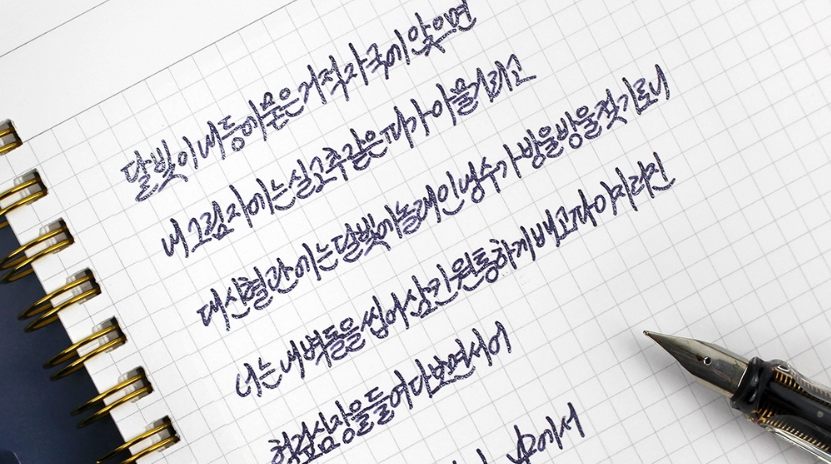 달빛이내등에묻은거적자국에앉으면
내그림자에는실고추같은피가아물거리고
대신혈관에는달빛에놀래인냉수가방울방울젖기로니
너는내벽돌을씹어삼킨원통하게배고파이지러진
헝겊심장을들여다보면서어
에서